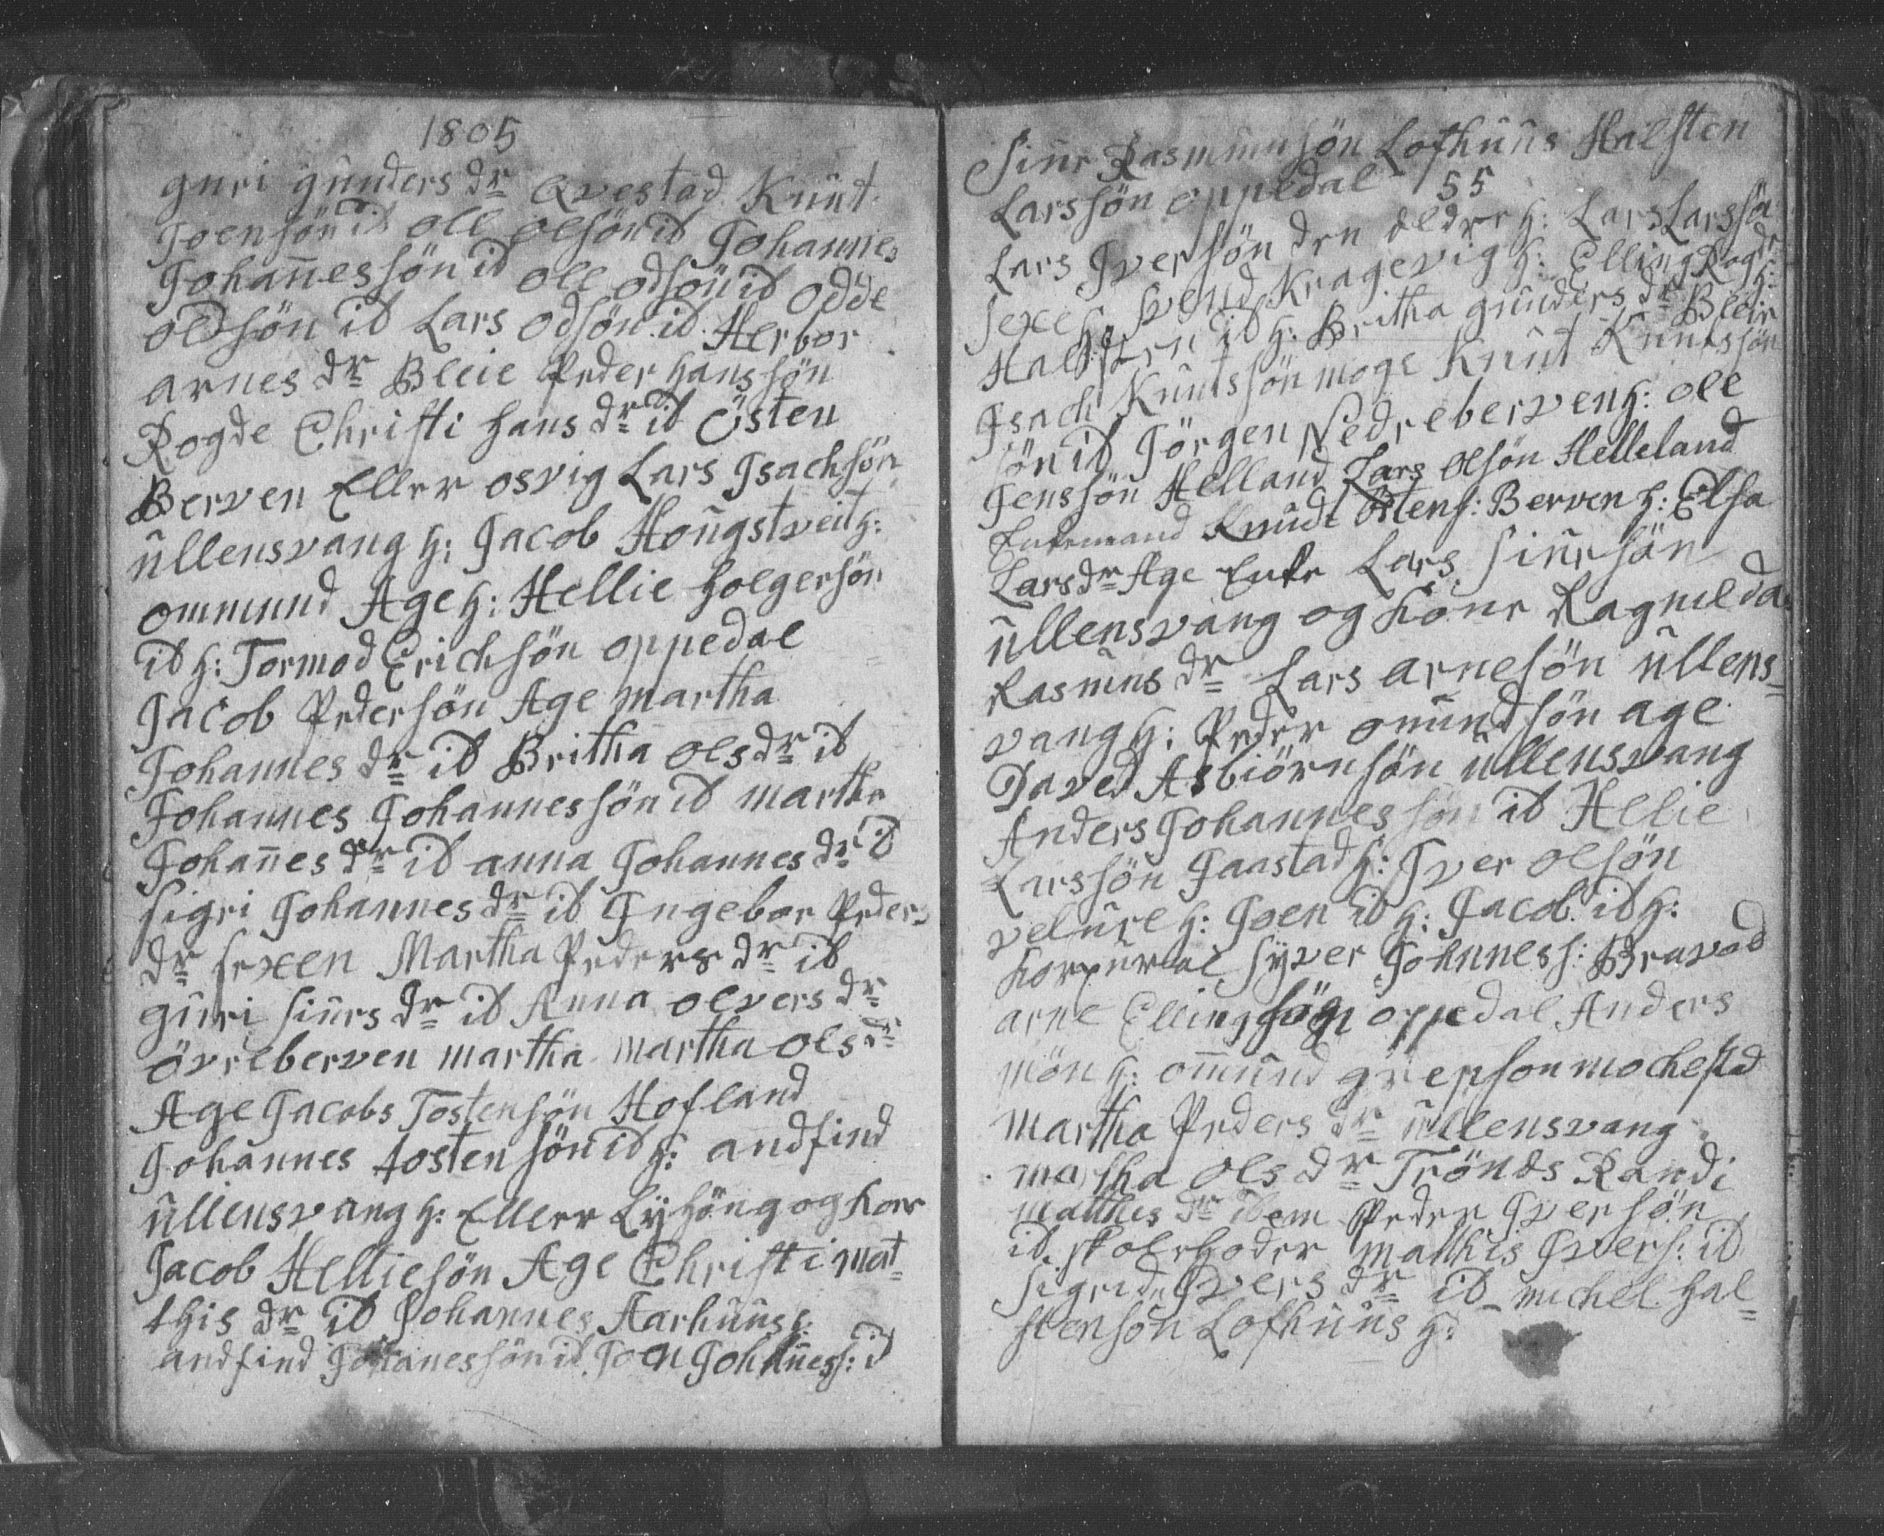 1805
guri gunders dr Qvestad Knut
Joensön id oll olsön id Johannes
Johannessön id oll odsön id odde
oldsön id Lars odsön id Herbor
arnes dr Bleie Peder hanssön
Rogde Christi hans dr id Östen
Berven Eller osvig Lars Isachsön
ûllensvang h: Jacob Hougstveit h:
ommund Age h: Hellie holgersön
id h: Tormod Erichsön oppedal
Jacob Pedersön Age martha
Johannes dr id Britha ols dr id
Johannes Johannessön id marthe
Johañes dr id anna Johannes dr id
sigri Johannes dr id Ingebor Peders
dr sexen Martha Peders dr id
guri siurs dr id Anna olvers dr
övreberven martha martha ols dr
Age Jacobs Tostensön Hofland
Johannes tostensön id h: andfind
ûllensvang h: Eller Lÿsöng og kone
Jacob Helliesön Age Christi mat=
this dr id Johannes Aarhuus h:
andfind Johanessön id Joen Johañes s: id
Siur Rasmunsön Lofthuus Halsten
Larssön oppedal 55
Lars Iversön den eldre h: Lars Larssön
sexe h: svend Kragevig h: Elling Rogde
Halsten id h: Britha gunders dr Bleie h:
Isach Knutssön moge Knut Knutssön
sön id Jörgen Nedreberven h: oll
Jenssön Helland Lars olsön Helleland
Enkemand Knudt östens: Berven h: Elsa
Lars dr Age Enke Lars siursön
ûllensvang og kone Ragnilda
Rasmus dr Lars arnesön ûllens=
vang h: Peder omundsön age
Daved Asbiörnsön ûllensvang
Anders Johannessön id Hellie
Larssön Jaastad h: Iver olsön
velure h: Joen id h: Jacob id h:
korpural sÿver Johnnes s: Bravod
arne Ellingsön oppedal Anders
mön h: omund grepson mochestad
Martha Peders dr ûllensvang
martha ols dr Trönds Randi
matthis dr idem Peder Iversön
id skoleholder matthis Ivers: id
sigrid Ivers dr id michel hal=
stensön Lofthuus h: